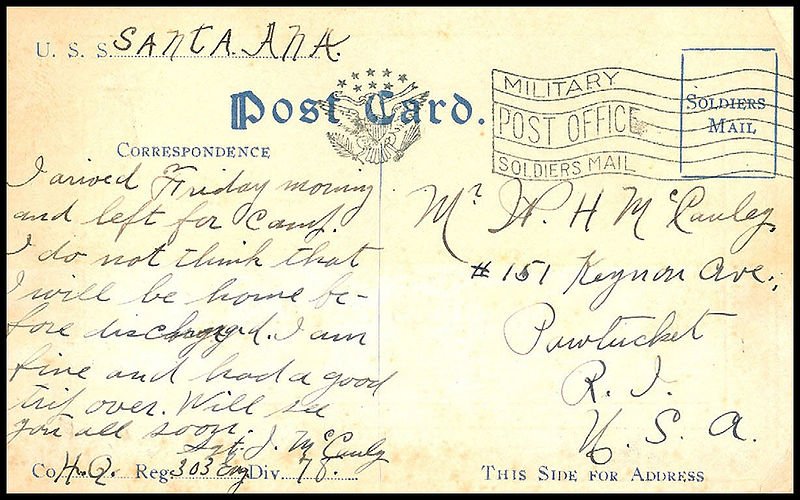 U. S. S. SANTA. ANA.
Post Card.
MILITARY
POST OFFICE
SOLDIERS MAIL
SOLDIERS
MAIL
CORRESPONDENCE
I arived Friday morning
and left for Camp.
I do not think that
I will be home be-
fore discharged. I am
fine and had a good
trip over. Will see
you all soon.
Sgt. J. McCauley
Co. H.Q. Reg. 303 Eng Div. 78.
Mr. W. H McCauley
#151 Keynon Ave.,
Pawtucket
R. I.
U. S. A.
THIS SIDE FOR ADDRESS